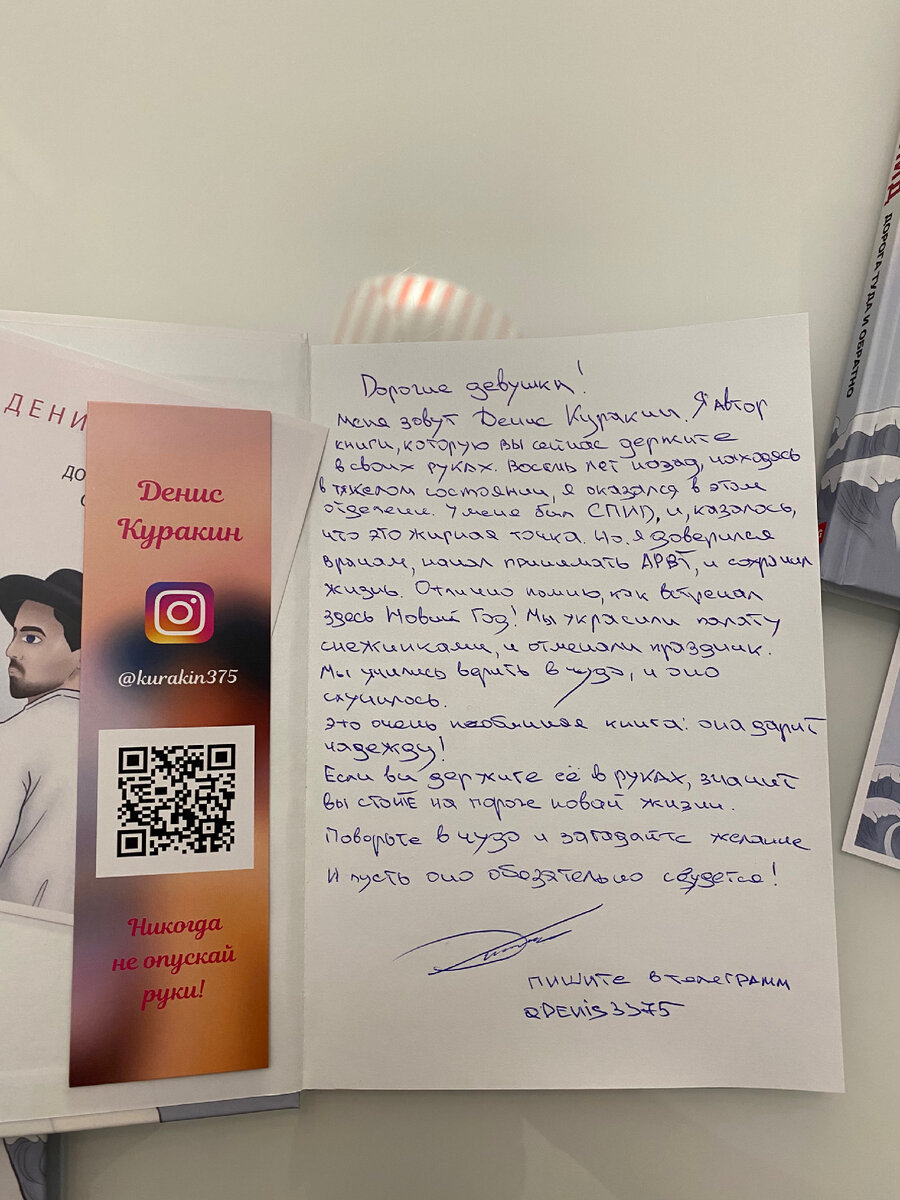 ДЕНИ
ДО
Денис
Куракин
@kurakin375
Никогда
не опускай
руки!
Дорогие девушки!
Меня зовут Денис Куракин. Я Автор
книги, которую вы сейчас держите
в своих руках. Восемь лет назад, находясь
в тяжелом состоянии, я оказался в этом
отделении. У меня был СПИД, и, казалось,
что это жирная точка. Но я доверился
врачам, начал принимать АРВТ, и сохранил
жизнь. Отлично помню, как встречал
здесь Новый Год! Мы украсили палату
снежинками, и отмечали праздник.
Мы учились верить в чудо, и оно
случилось.
Это очень необычная книга: она дарит
надежду!
Если вы держите её в руках, значит
вы стоите на пороге новой жизни.
Поверьте в чудо и загадайте желание
И пусть оно обязательно сбудется!
пишите в телеграмм
@DENIS3375
ДОРОГА ТУДА И ОБРАТНО